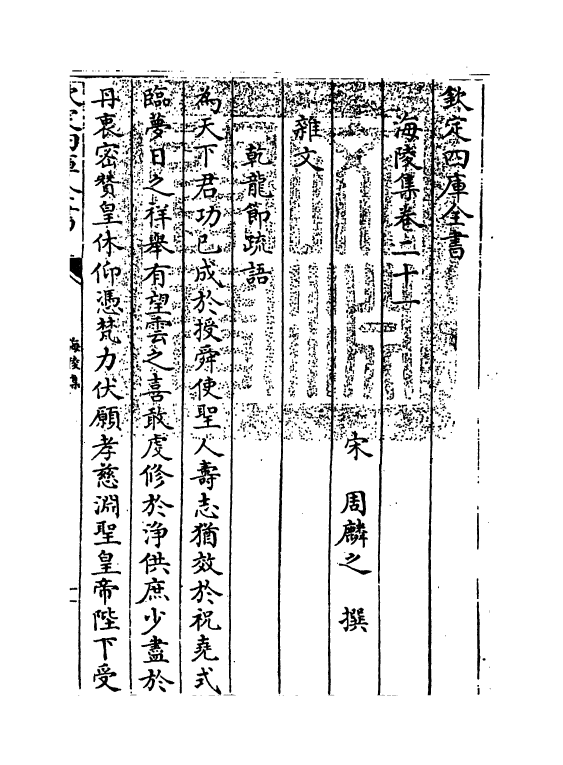 欽定四庫全書
海陵集卷二十一
宋 周麟之 撰
雜文
乾龍節疏語
為天下君功已成於授舜使聖人壽志猶效於祝堯式
臨夢日之祥舉有望雲之喜敢虔修於淨供庶少盡於
丹衷密贊皇休仰憑梵力伏願孝慈淵聖皇帝陛下受
海陵集